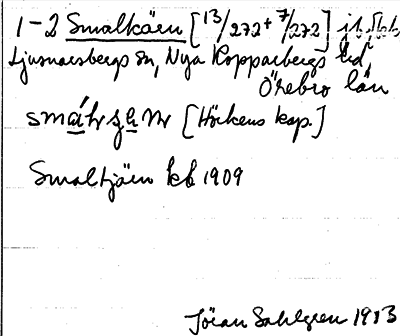 1-2 Smalkäen [13/272 + 7/272]
Ljusnarsbergs sn, Nya Kopparbergs bd,
Örebro län
[Hörkens kap.]
Smaltjäen kb 1909
Jöran Sahlgren 1913